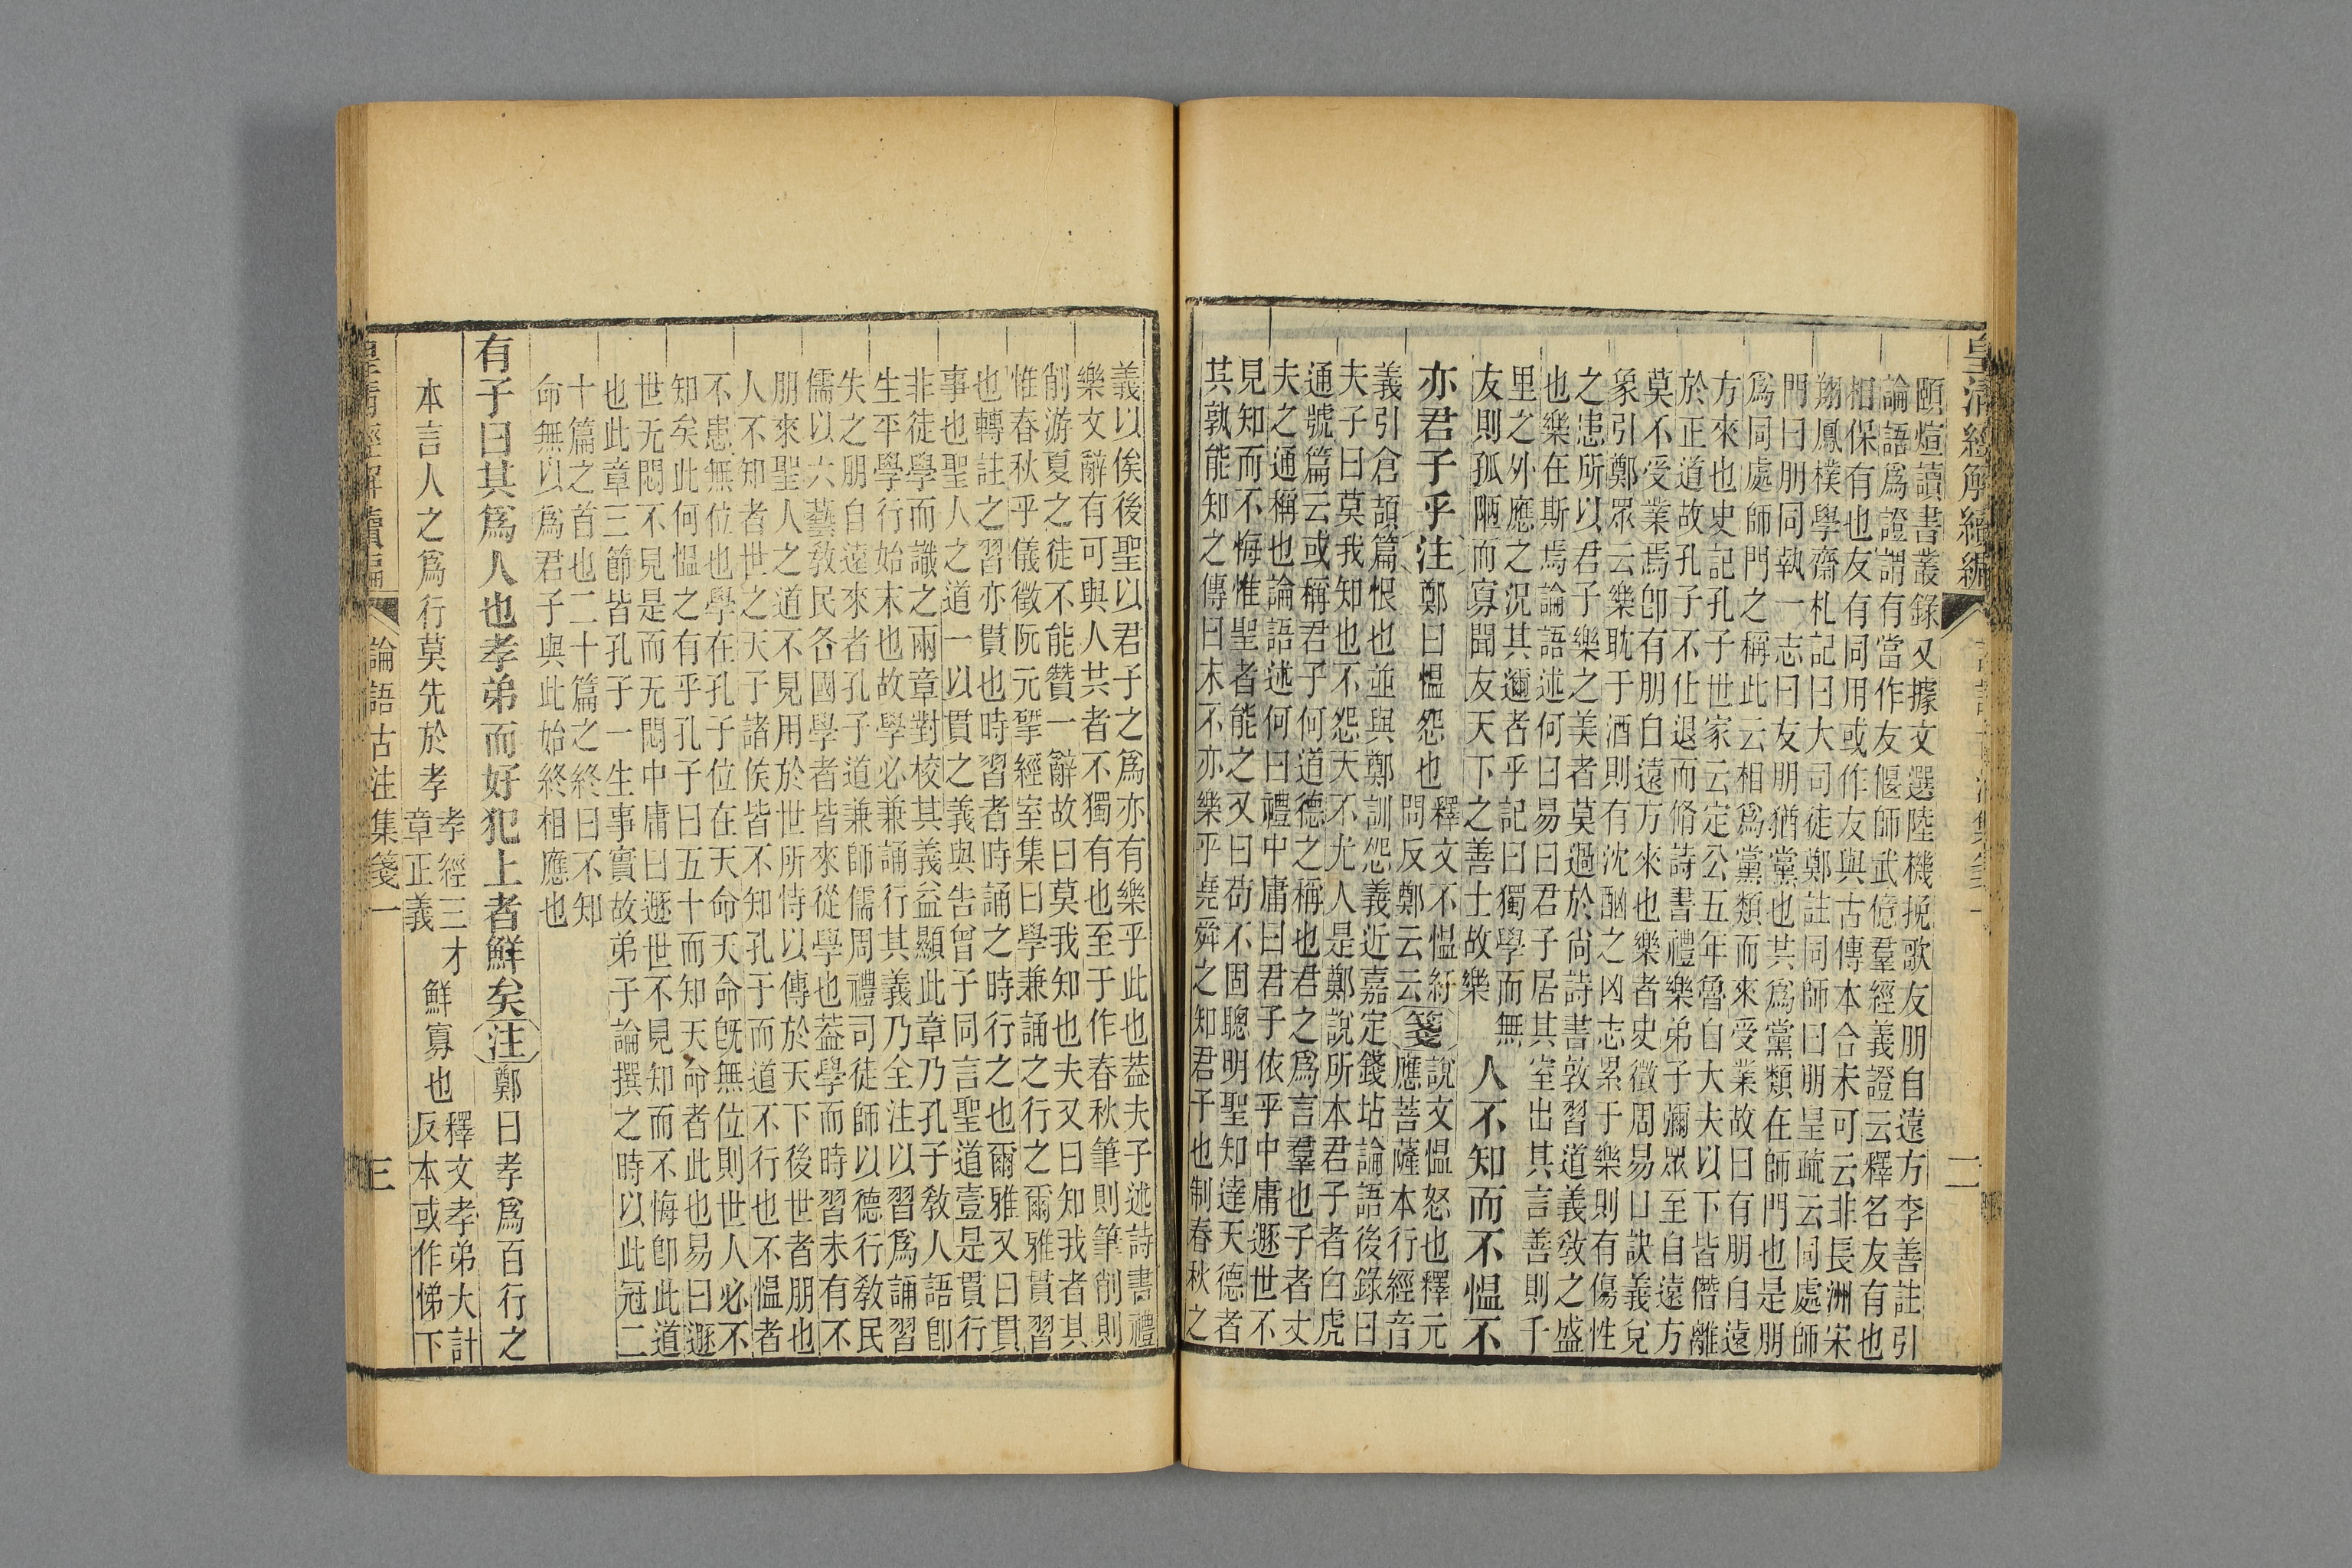 皇清經解續編 二
頤煊讀書叢錄又據文選陸機挽歌友朋自遠方李善註引
論語爲證謂有當作友偃師武億羣經義證云釋名友有也
相保有也友有同用或作友與古傳本合未可云非長洲宋
翔鳳樸學齋札記曰大司徒鄭註同師曰朋皇疏云同處師
門曰朋同執一志曰友朋猶黨也共爲黨類在師門也是朋
爲同處師門之稱此云相爲黨類而來受業故曰有朋自遠
方來也史記孔子世家云定公五年魯自大夫以下皆僭離
於正道故孔子不仕退而脩詩書禮樂弟子彌眾至自遠方
莫不受業焉卽有朋自遠方來也樂者史徵周易口訣義兌
象引鄭眾云樂耽于酒則有沈酗之凶志累于樂則有傷性
之患所以君子樂之美者莫過於尚詩書敦習道義敎之盛
也樂在斯焉論語述何曰易曰君子居其室出其言善則千
里之外應之況其邇者乎記曰獨學而無
友則孤陋而寡聞友天下之善士故樂
人不知而不慍不
亦君子乎注鄭曰慍怨也
釋文不慍紆
問反鄭云云
箋
說文慍怒也釋元
應菩薩本行經音
義引倉頡篇恨也並與鄭訓怨義近嘉定錢坫論語後錄曰
夫子曰莫我知也不怨天不尤人是鄭說所本君子者白虎
通號篇云或稱君子何道德之稱也君之爲言羣也子者丈
夫之通稱也論語述何曰禮中庸曰君子依乎中庸遯世不
見知而不悔惟聖者能之又曰苟不固聰明聖知達天德者
其孰能知之傳曰末不亦樂乎堯舜之知君子也制春秋之
義以俟後聖以君子之爲亦有樂乎此也葢夫子述詩書禮
樂文辭有可與人共者不獨有也至于作春秋筆則筆削則
削游夏之徒不能贊一辭故曰莫我知也夫又曰知我者其
惟春秋乎儀徵阮元揅經室集曰學兼誦之行之爾雅貫習
也轉註之習亦貫也時習者時誦之時行之也爾雅又曰貫
事也聖人之道一以貫之義與告曾子同言聖道壹是貫行
非徒學而識之兩章對校其義益顯此章乃孔子敎人語卽
生平學行始末也故學必兼誦行其義乃全注以習爲誦習
失之朋自遠來者孔子道兼師儒周禮司徒師以德行敎民
儒以六藝敎民各國學者皆來從學也葢學而時習未有不
朋來聖人之道不見用於世所恃以傳於天下後世者朋也
人不知者世之天子諸侯皆不知孔子而道不行也不慍者
不患無位也學在孔子位在天命天命旣無位則世人必不
知矣此何慍之有乎孔子曰五十而知天命者此也易曰遯
世无悶不見是而无悶中庸曰遯世不見知而不悔卽此道
也此章三節皆孔子一生事實故弟子論撰之時以此冠二
十篇之首也二十篇之終曰不知
命無以爲君子與此始終相應也
有子曰其爲人也孝弟而好犯上者鮮矣注鄭曰孝爲百行之
本言人之爲行莫先於孝
孝經三才
章正義
鮮寡也
釋文孝弟大計
反本或作悌下
皇清經解續編 論語古注集箋一 三